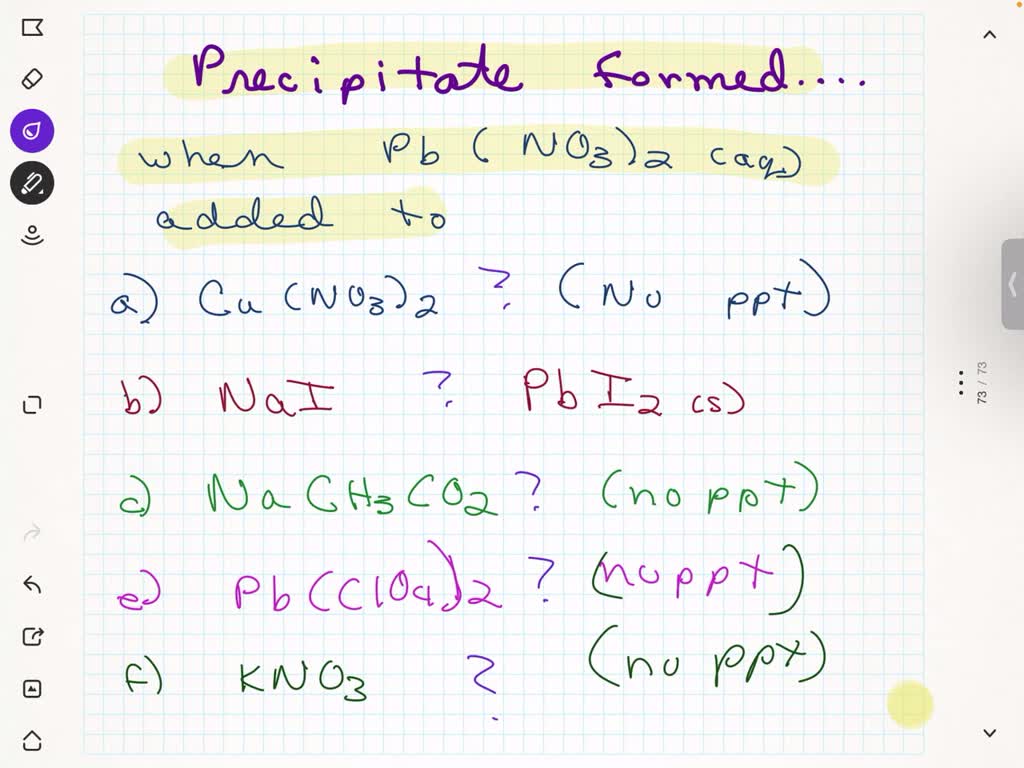 Precipitate formed....
when Pb(NO3)2 (aq)
added to
a) Cu(NO3)2 ? (No ppt)
b) NaI ? PbI2 (s)
c) NaCH3CO2 ? (no ppt)
e) Pb(ClO4)2 ? (no ppt)
f) KNO3 ? (no ppt)
73 / 73